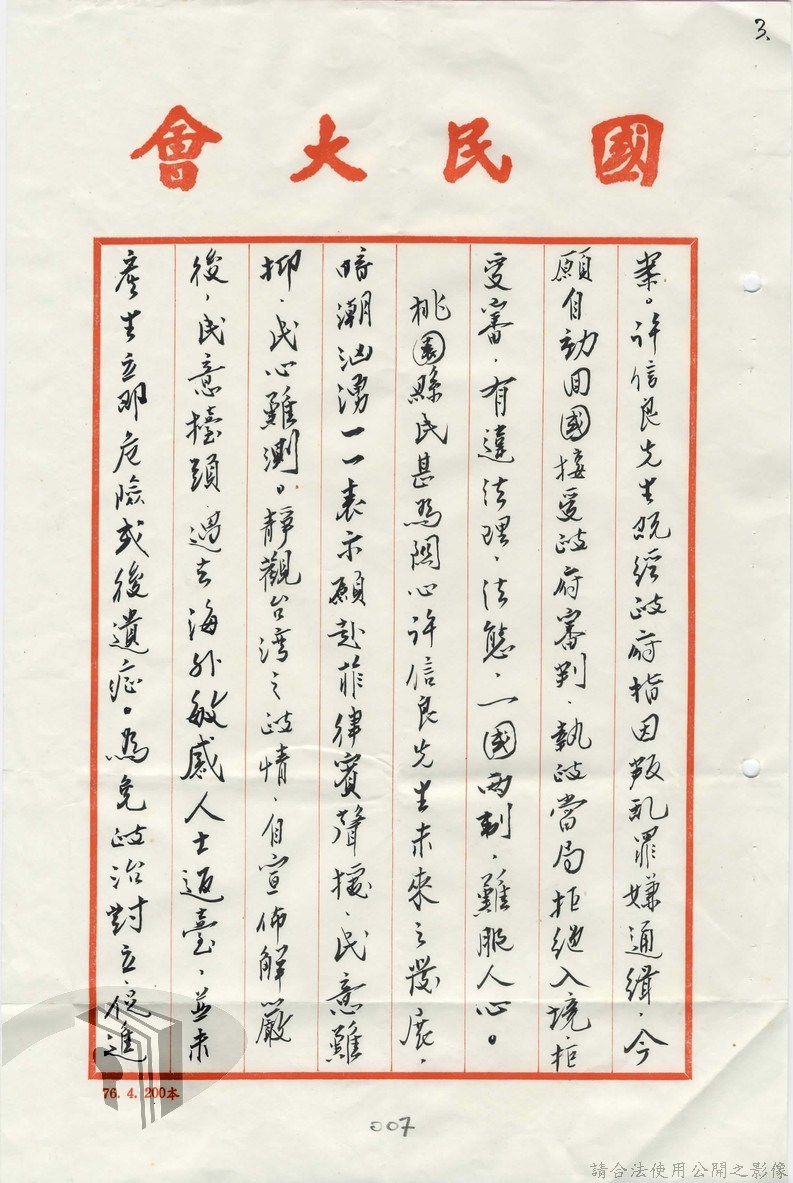 3.
國民大會
業。許信良先生既經政府指因叛乱罪嫌通緝，今
願自動回國接受政府審判，執政當局拒絕入境，拒
受審，有違法理，法態，一國兩制，難服人心。
桃園縣民甚為關心許信良先生未來之發展，
暗潮汹湧一一表示願赴菲律賓聲援，民意難
抑，民心難測。靜觀台湾之政情，自宣佈解嚴
後，民意擡頭，過去海外敏感人士返臺，並未
產生立即危險或後遺症。為免政治對立，促進
76. 4. 200本
007
請合法使用公開之影像